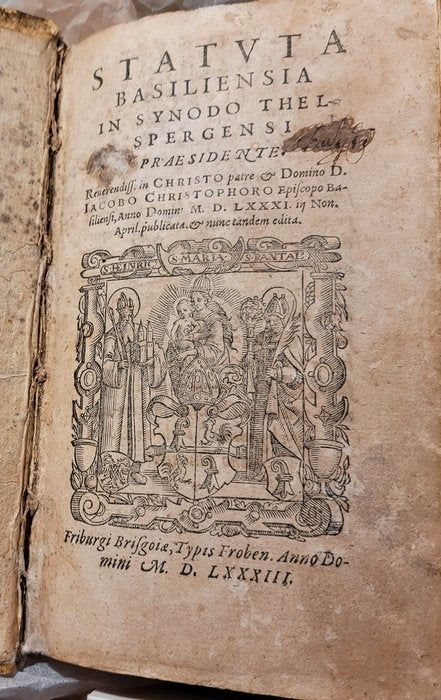 STATVTA
BASILIENSIA
IN SYNODO THEL-
SPERGENSI
PRAESIDENTE.
Reuerendiss. in CHRISTO patre & Domino D.
IACOBO CHRISTOPHORO Episcopo Ba-
siliensi, Anno Domini M. D. LXXXI. iij Non.
April. publicata. & nunc tandem edita.
S. HEINRIC S. MARIA S. PANTAL
Friburgi Brisgoiæ, Typis Froben. Anno Do-
mini M. D. LXXXIII.